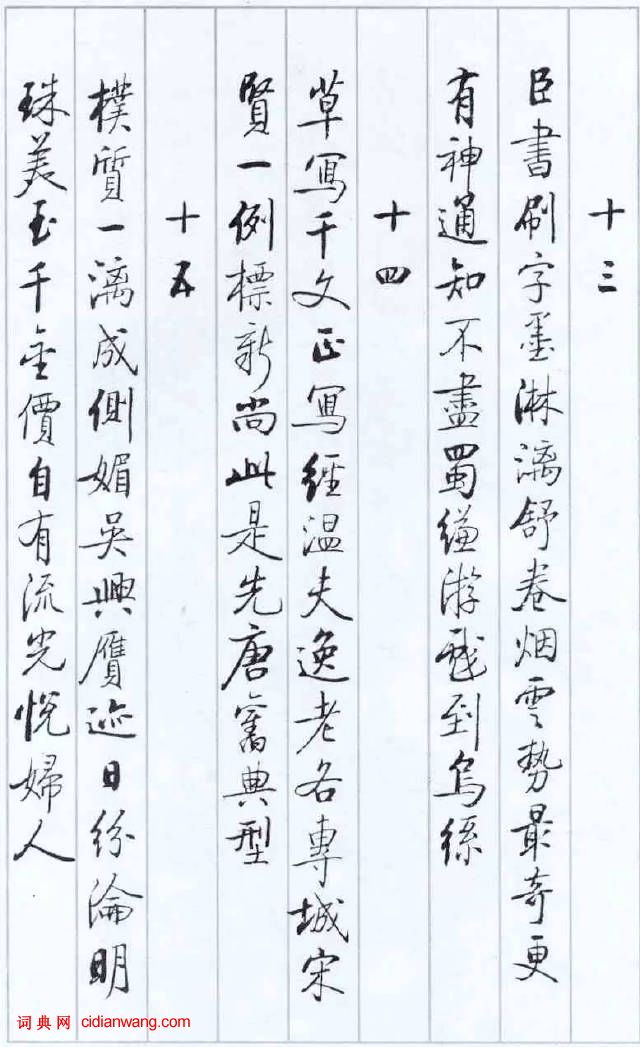 十三
臣書刷字墨淋漓舒卷烟雲勢最奇更
有神通知不盡蜀縑游戲到烏絲
十四
草寫千文正寫經温夫逸老各專城宋
賢一例標新尚此是先唐舊典型
十五
樸質一漓成側媚吴興贋迹日紛淪明
珠美玉千金價自有流光悦婦人
词典网 cidianwang.com